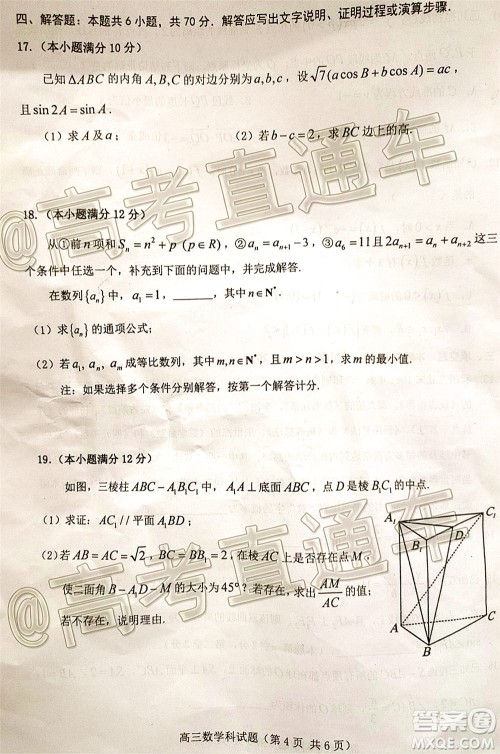 四、解答题：本题共6小题，共70分．解答应写出文字说明、证明过程或演算步骤．
17.（本小题满分10分）
已知ΔABC的内角A,B,C的对边分别为a,b,c，设√7(acosB+bcosA)=ac，
且sin2A=sinA．
（1）求A及a；（2）若b−c=2，求BC边上的高．
18.（本小题满分12分）
从①前n项和Sₙ=n²+p (p∈R)，②aₙ=aₙ₊₁−3，③a₆=11且2aₙ₊₁=aₙ+aₙ₊₂这三
个条件中任选一个，补充到下面的问题中，并完成解答．
在数列{aₙ}中，a₁=1，______，其中n∈N*．
（1）求{aₙ}的通项公式；
（2）若a₁, aₙ, aₘ成等比数列，其中m,n∈N*，且m>n>1，求m的最小值．
注：如果选择多个条件分别解答，按第一个解答计分．
19.（本小题满分12分）
如图，三棱柱ABC−A₁B₁C₁中，侧棱AA₁⊥底面ABC，点D是棱B₁C₁的中点．
（1）求证：AC₁//平面A₁BD；
（2）若AB=AC=√2，BC=BB₁=2，在棱AC上是否存在点M，
使二面角B−A₁D−M的大小为45°？若存在，求出AM/AC的值；
若不存在，说明理由．
A₁
C₁
B₁
D
A
C
B
高三数学科试题（第4页 共6页）
@高考直通车
@高考直通车
答案圈
MXQE.COM